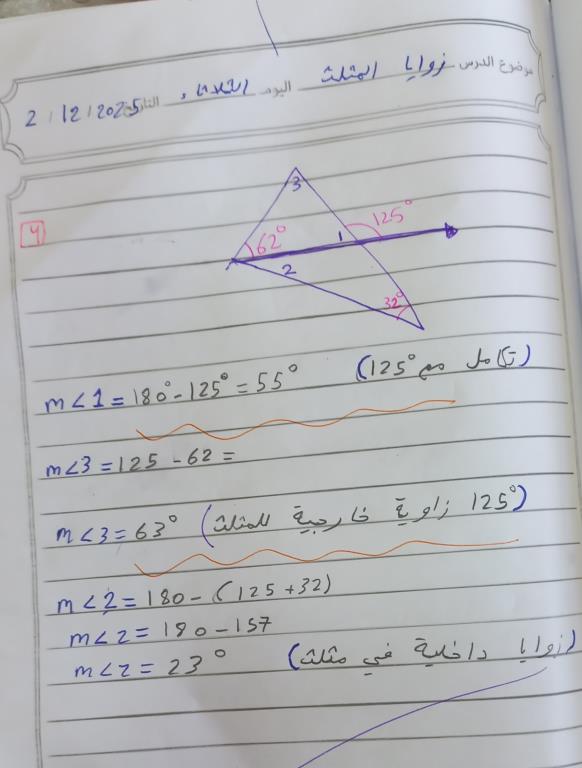 موضوع الدرس زوايا المثلث اليوم الثلاثاء التاريخ 2/12/2025
4
3
62°
1
125°
2
32°
m<1 = 180° - 125° = 55° (تكامل مع 125°)
m<3 = 125 - 62 =
m<3 = 63° (125° زاوية خارجية للمثلث)
m<2 = 180 - (125 + 32)
m<2 = 180 - 157
m<2 = 23° (زوايا داخلية في مثلث)